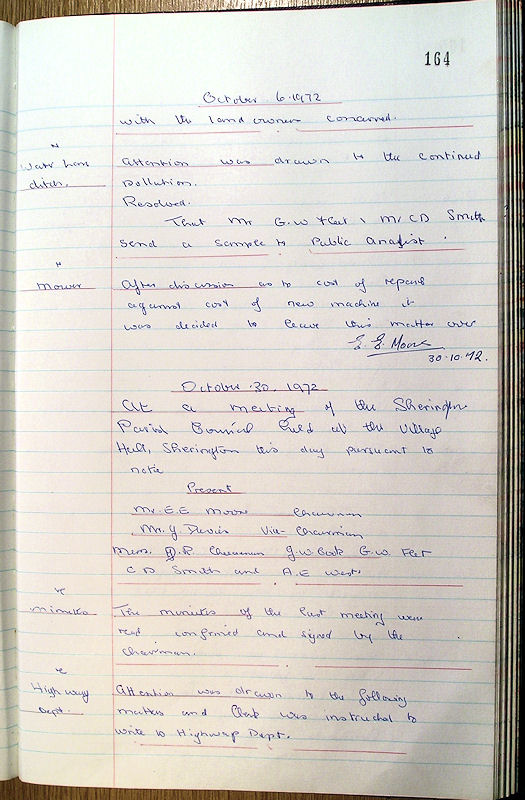 164
October 6. 1972
with the land owner concerned.
Water Lane
ditch.
Attention was drawn to the continued
pollution.
Resolved.
That Mr G.W Feet & Mr CD Smith
send a sample to Public Analist.
Mower
After discussion as to cost of repairs
against cost of new machine it
was decided to leave this matter over
E. E. Moore
30.10.72.
October 30. 1972
At a meeting of the Sherington
Parish Council held at the Village
Hall, Sherington this day pursuant to
notice
Present
Mr. E.E Moore Chairman
Mr. G Davis Vice-Chairman
Messrs. D.R. G.W Cook G.W. Feet
C D Smith and A.E West.
Minutes
The minutes of the last meeting were
read confirmed and signed by the
Chairman.
High way
Dept.
Attention was drawn to the following
matters and Clerk was instructed to
write to Highway Dept.